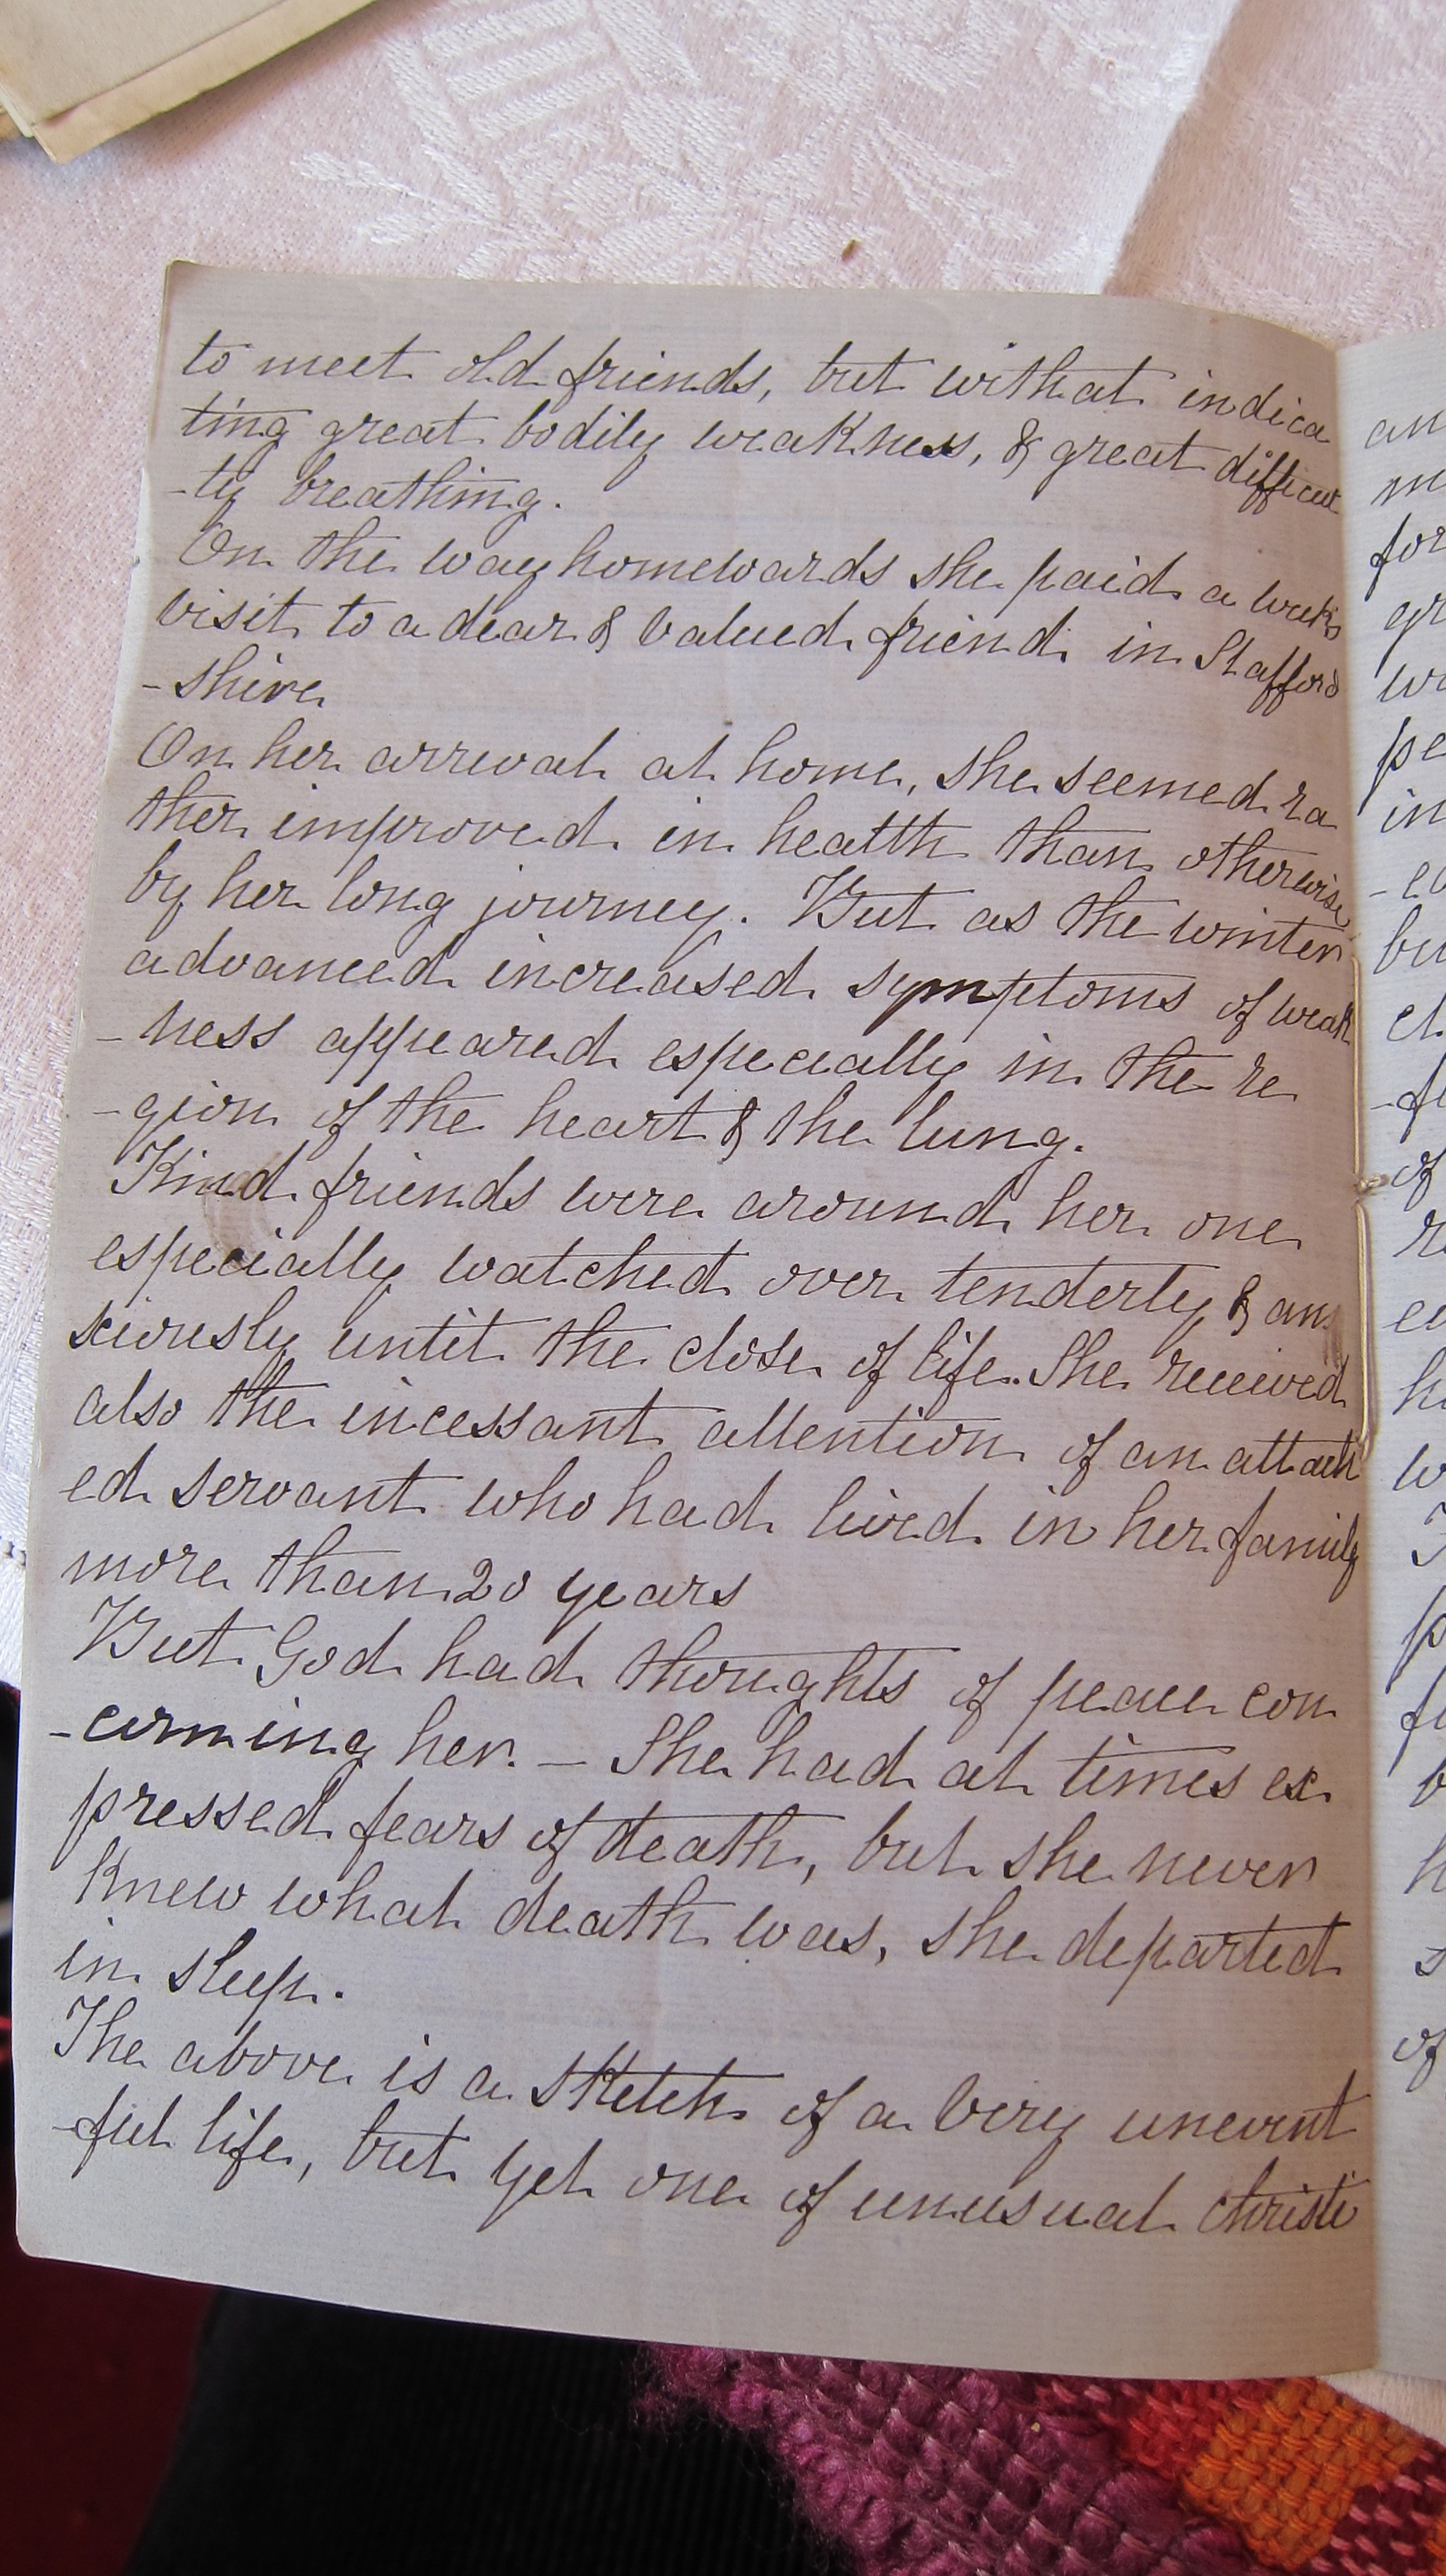 to meet old friends, but withal indica
ting great bodily weakness, & great difficul
-ty breathing.
On the way homewards she paid a weeks
visit to a dear & valued friend in Stafford
-shire
On her arrival at home, she seemed ra
ther improved in health than otherwise
by her long journey. But as the winter
advanced increased symptoms of weak
-ness appeared especially in the re
-gion of the heart & the lung.
Kind friends were around her one
especially watched over tenderly & an
xiously until the close of life. She received
also the incessant attention of an attach
ed servant who had lived in her family
more than 20 years
But God had thoughts of peace con
-cerning her. – She had at times ex
pressed fears of death, but she never
knew what death was, she departed
in sleep.
The above is a sketch of a very unevent
-ful life, but yet one of unusual christi